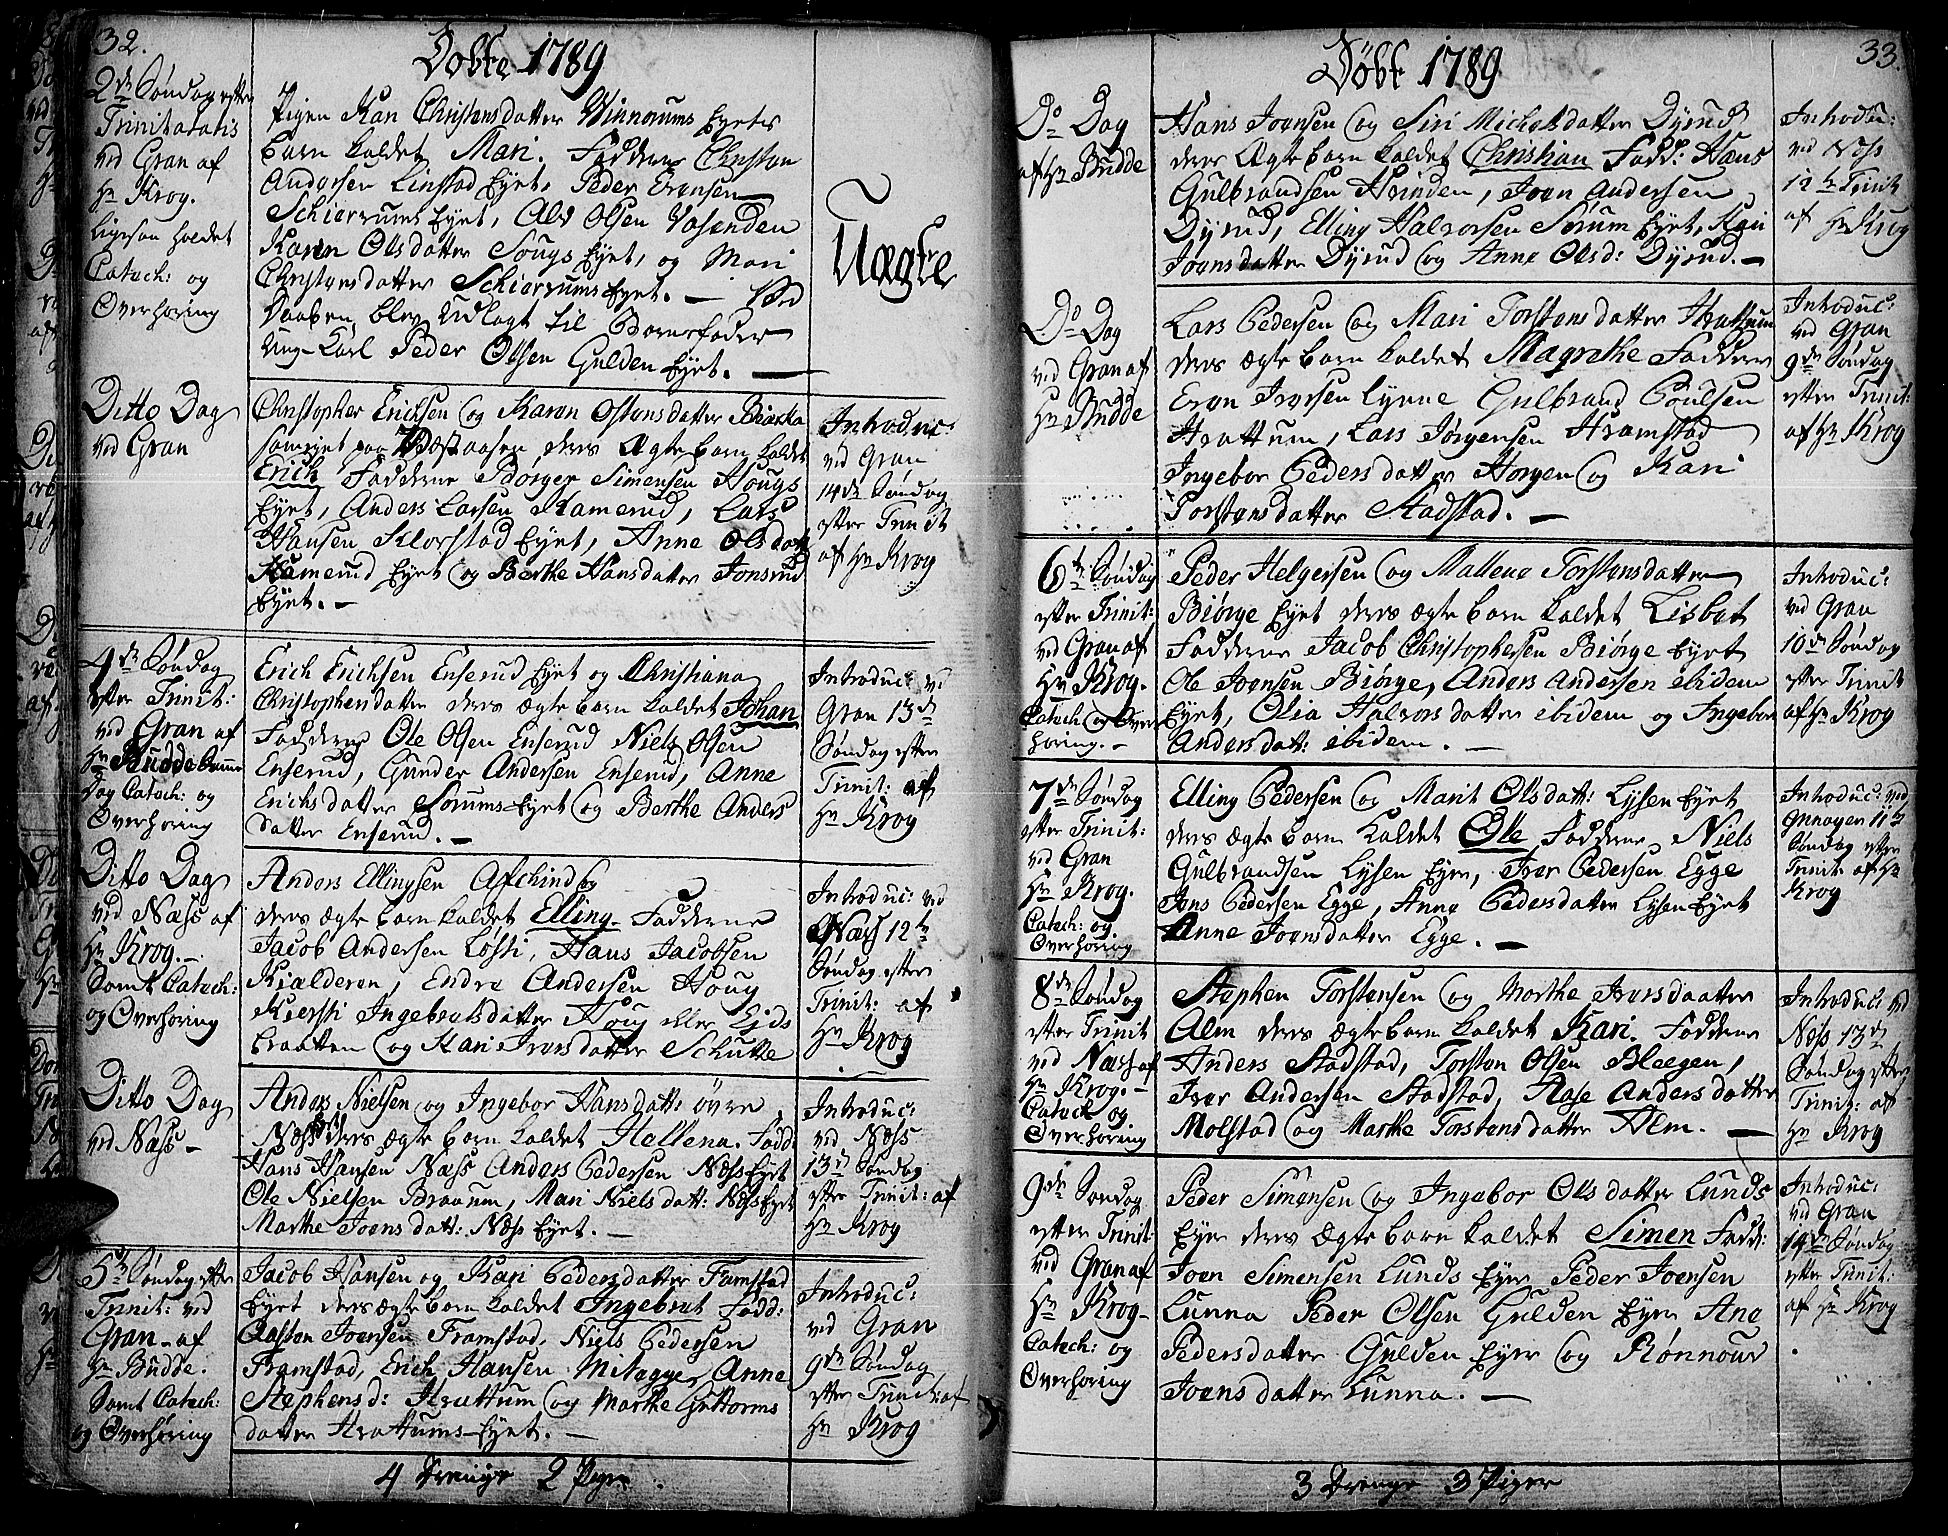 32.
Døbte 1789
2den Søndag efter
Trinitatis
ved Gran af
Hr Krog.
Ligesaa holdet
Catech: og
Overhøring
Pigen Kari Christensdatter Winnorums Eyets
barn kaldet Mari. Faddere Christen
Andersen Linstad Eyet, Peder Evensen
Schierrums Eyet, Alv Olsen Vasenden
Karen Olsdatter Hougs Eyet, og Mari
Christensdatter Schierrums Eyet. — Ved
Daaben blev Udlagt til Barnefader
Ung-Karl Peder Olsen Gulden Eyet. —
Uægte
Ditto Dag
ved Gran
Christopher Erichsen og Karen Ostensdatter
paa Næstaasen deres Ægte barn kaldet
Erich Faddere Børger Simensen Hougs
Eyet, Anders Larsen Hamerud, Lars
Hansen Klorstad Eyet, Anne Olsdatt
Hamerud Eyet og Berthe Hansdatter Jonsrud
Eyet. —
Introduc:
ved Gran
14de Søndag
efter Trinit
af Hr Krog
4de Søndag
efter Trinit:
ved Gran af
Hr Budde
Dag Catech: og
Overhøring
Erich Erichsen Enserud Eyet og Christiana
Christophersdatter deres Ægte barn kaldet Johan
Faddere Ole Olsen Enserud Niels Olsen
Enserud, Gunder Andersen Enserud, Anne
Erichsdatter Sørums Eyet og Berthe Anders
datter Enserud. —
Introduc: ved
Gran 13de
Søndag efter
Trinit: af
Hr Krog
Ditto Dag
ved Næss af
Hr Krog. —
Samt Catech:
og Overhøring
Anders Ellingsen Afchind og
deres Ægte barn kaldet Elling. Faddere
Jacob Andersen Løsti, Hans Jacobsen
Kielderen, Endre Andersen Houg
Kiersti Ingebretsdatter Houg eller Eids
braatten og Kari Iversdatter Schutte
Introduc: ved
Næss 12te
Søndag efter
Trinit: af
Hr Krog
Ditto Dag
ved Næss —
Anders Nielsen og Ingebor Hansdatt: øvre
Næss deres Ægte barn kaldet Hallena. Fadd:
Hans Hansen Næss Anders Pedersen Næss Eyet
Ole Nielsen Braarum, Mari Niels datt: Næss Eyet
Marthe Joens datt: Næss Eyet. —
Introduc:
ved Næss
13de Søndag
efter Trinit: af
Hr Krog
5te Søndag efter
Trinit: ved
Gran — af
Hr Budde.
Samt Catech:
og Overhøring
Jacob Hansen og Kari Pedersdatter Framstad
Eyet deres ægte barn kaldet Ingebret Fadd:
Joensen Framstad, Niels Pedersen
Framstad, Erich Hansen Anne
Stephensd: Hrattum og Marthe Guttorms
datter Hrattums Eyet. —
Introduc:
ved Gran
9de Søndag
efter Trinit: af
Hr Krog
4 Drenge 2 Piger.
33.
Døbt 1789
Do Dag
af Hr Budde
Hans Joensen og Siri Michelsdatter Dyrud
deres Ægte barn kaldet Christian Fadd: Hans
Gulbrandsen Hvinden, Joen Andersen
Dyrud, Elling Halvorsen Sørum Eyet, Kari
Joens datter Dyrud og Anne Olsd: Dyrud. —
Introdu:
ved Næss
12te Trinit
af Hr Krog
Do Dag
ved Gran af
Hr Budde
Lars Pedersen og Mari Torstensdatter Hrattum
deres ægte barn kaldet Magrethe Faddere
Even Iversen Lynne Gulbrand Poulsen
Hrattum, Lars Jørgensen Framstad
Ingebor Pedersdatter Horgen og Kari
Torstensdatter Stadstad. —
Introduc:
ved Gran
9de Søndag
efter Trinit:
af Hr Krog
6te Søndag
efter Trinit:
ved Gran af
Hr Krog.
Catech og Over
høring. —
Peder Helgersen og Mallena Torstensdatter
Biørge Eyet deres ægte barn kaldet Lisbet
Faddere Jacob Christophersen Biørge Eyet
Ole Joensen Biørge, Anders Andersen ibidem
Eyet, Olia Halvors datter ibidem og Ingebor
Andersdatt: ibidem. —
Introduc:
ved Gran
10de Søndag
efter Trinit
af Hr Krog
7de Søndag
efter Trinit:
ved Gran
Hr Krog.
Catech: og.
Overhøring
Elling Pedersen og Marit Olsdatt: Lysen Eyet
deres ægte barn kaldet Ole Faddere Niels
Gulbrandsen Lysen Eyer, Iver Pedersen Egge
Jens Pedersen Egge, Anne Pedersdatter Lysen Eyet
Anne Joensdatter Egge. —
Introduc: ved
11te
Søndag efter
Trinit: af Hr
Krog
8de Søndag
efter Trinit
ved Næss af
Hr Krog. —
Catech og
Overhøring
Stephen Torstensen og Marthe Iversdaatter
Alm deres ægte barn kaldet Kari. Faddere
Anders Stadstad, Torsten Olsen Bleegen,
Iver Andersen Stadstad, Aase Anders datter
Molstad og Marthe Torstensdatter Alm. —
Introduc: ved
Næss 13de
Søndag efter
Trinit: af
Hr Krog
9de Søndag
efter Trinit:
ved Gran af
Hr Krog —
Catech: og
Overhøring
Peder Simensen og Ingebor Olsdatter Lunds
Eyer deres Ægte barn kaldet Simen Fadd:
Joen Simensen Lunds Eyer Peder Joensen
Lunna Peder Olsen Gulden Eyer Ane
Pedersdatter Gulden Eyer og Rønnour
Joens datter Lunna. —
Introduc:
ved Gran
14de Søndag
efter Trinit:
af Hr Krog
3 Drenge 3 Piger